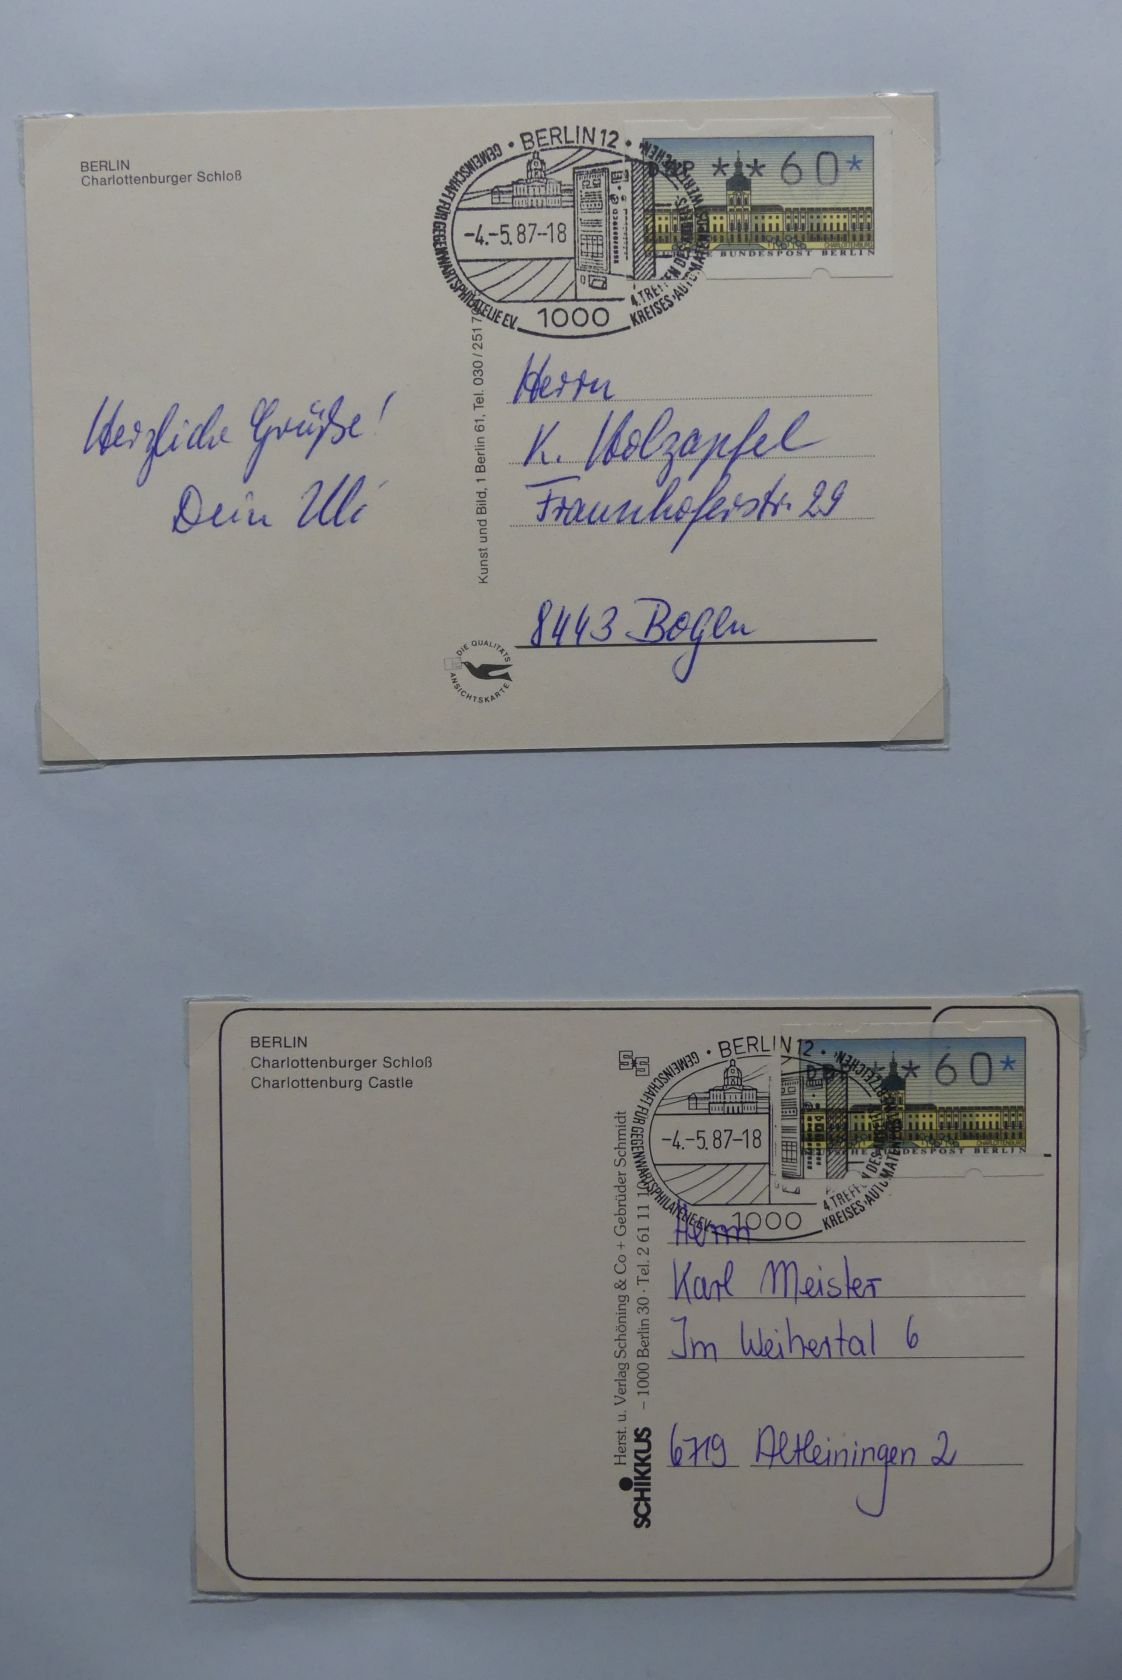 BERLIN
Charlottenburger Schloß
· BERLIN 12 ·
GEMEINSCHAFT FÜR GEGENWARTSPHILATELIE E.V.
-4.-5.87-18
4. TREFFEN DES
KREISES·AUTOMATEN
1000
DBP **60*
DEUTSCHE BUNDESPOST BERLIN
Herzliche Grüße!
Dein Uli
Kunst und Bild, 1 Berlin 61, Tel. 030 / 251
Herrn
K. Holzapfel
Fraunhoferstr. 29
8443 Bogen
DIE QUALITÄTS
ANSICHTSKARTE
BERLIN
Charlottenburger Schloß
Charlottenburg Castle
· BERLIN 12 ·
GEMEINSCHAFT FÜR GEGENWARTSPHILATELIE E.V.
-4.-5.87-18
4. TREFFEN DES
KREISES·AUTOMATEN
1000
DBP **60*
DEUTSCHE BUNDESPOST BERLIN
SCHIKKUS
Herst. u. Verlag Schöning & Co + Gebrüder Schmidt
– 1000 Berlin 30 · Tel. 2 61 11
Herrn
Karl Meister
Im Weihertal 6
6719 Altleiningen 2